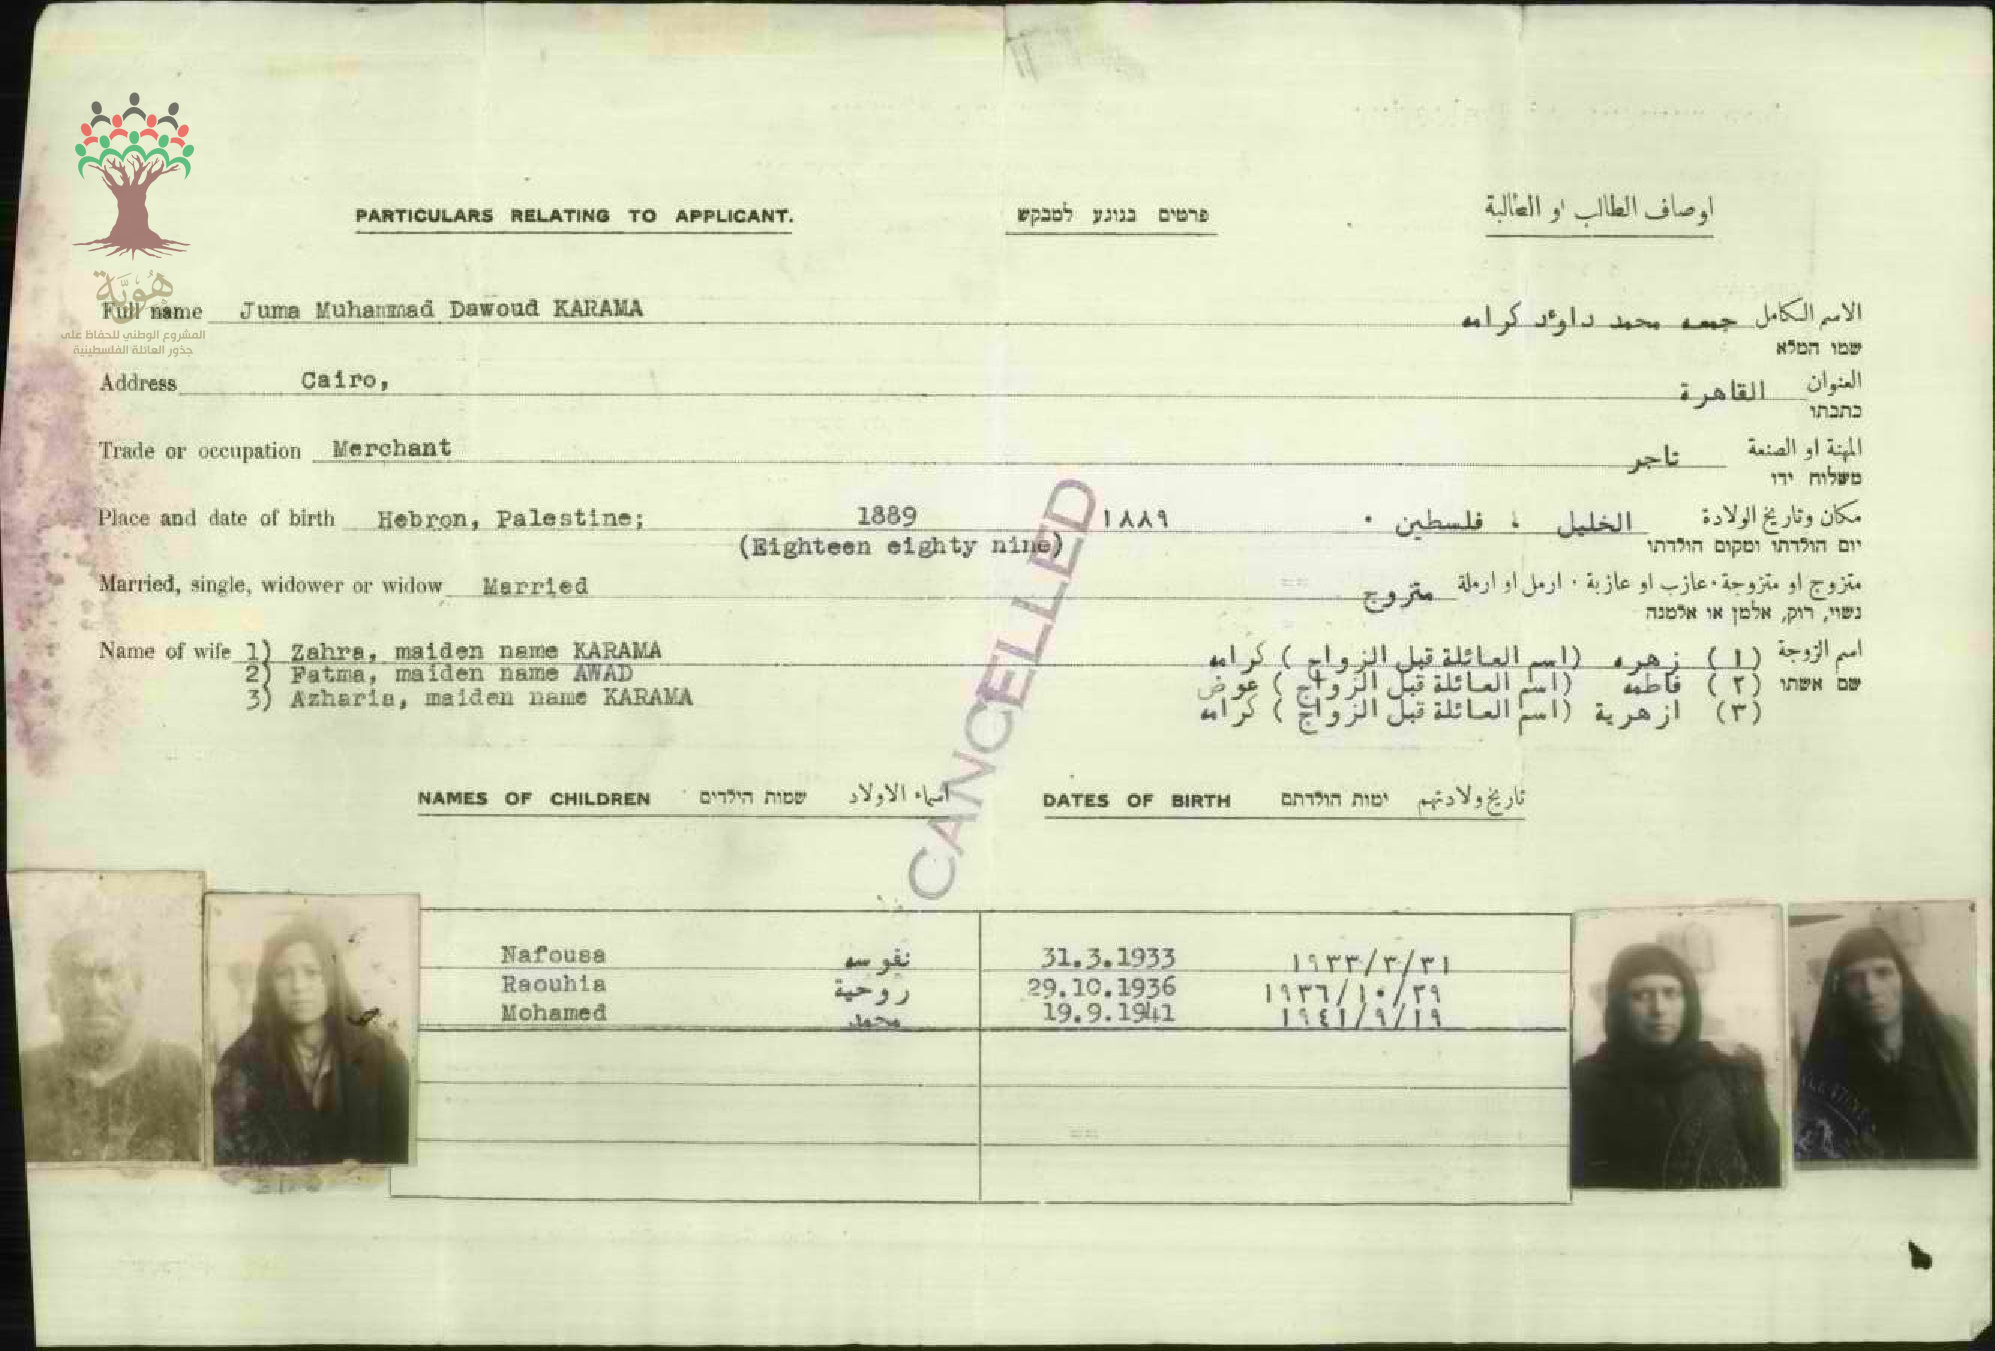 PARTICULARS RELATING TO APPLICANT. פרטים בנוגע למבקש اوصاف الطالب او الطالبة
هُوِيَّة
المشروع الوطني للحفاظ على
جذور العائلة الفلسطينية
Full name Juma Muhammad Dawoud KARAMA الاسم الكامل جمعه محمد داوءد كرامه
שמו המלא
Address Cairo, العنوان القاهرة
כתבתו
Trade or occupation Merchant المهنة او الصنعة تاجر
משלוח ידו
Place and date of birth Hebron, Palestine; 1889 ١٨٨٩ مكان وتاريخ الولادة الخليل ، فلسطين ٠
(Eighteen eighty nine) יום הולדתו ומקום הולדתו
Married, single, widower or widow Married متزوج او متزوجة٠عازب او عازبة ٠ ارمل او ارملة متزوج
נשוי, רוק, אלמן או אלמנה
Name of wife 1) Zahra, maiden name KARAMA اسم الزوجة (١) زهره (اسم العائلة قبل الزواج) كرامه
2) Fatma, maiden name AWAD שם אשתו (٢) فاطمه (اسم العائلة قبل الزواج) عوض
3) Azharia, maiden name KARAMA (٣) ازهرية (اسم العائلة قبل الزواج) كرامه
CANCELLED
NAMES OF CHILDREN שמות הילדים اسماء الاولاد DATES OF BIRTH ימות הולדתם تاريخ ولادتهم
Nafousa نفوسه 31.3.1933 ١٩٣٣/٣/٣١
Raouhia روحية 29.10.1936 ١٩٣٦/١٠/٢٩
Mohamed محمد 19.9.1941 ١٩٤١/٩/١٩